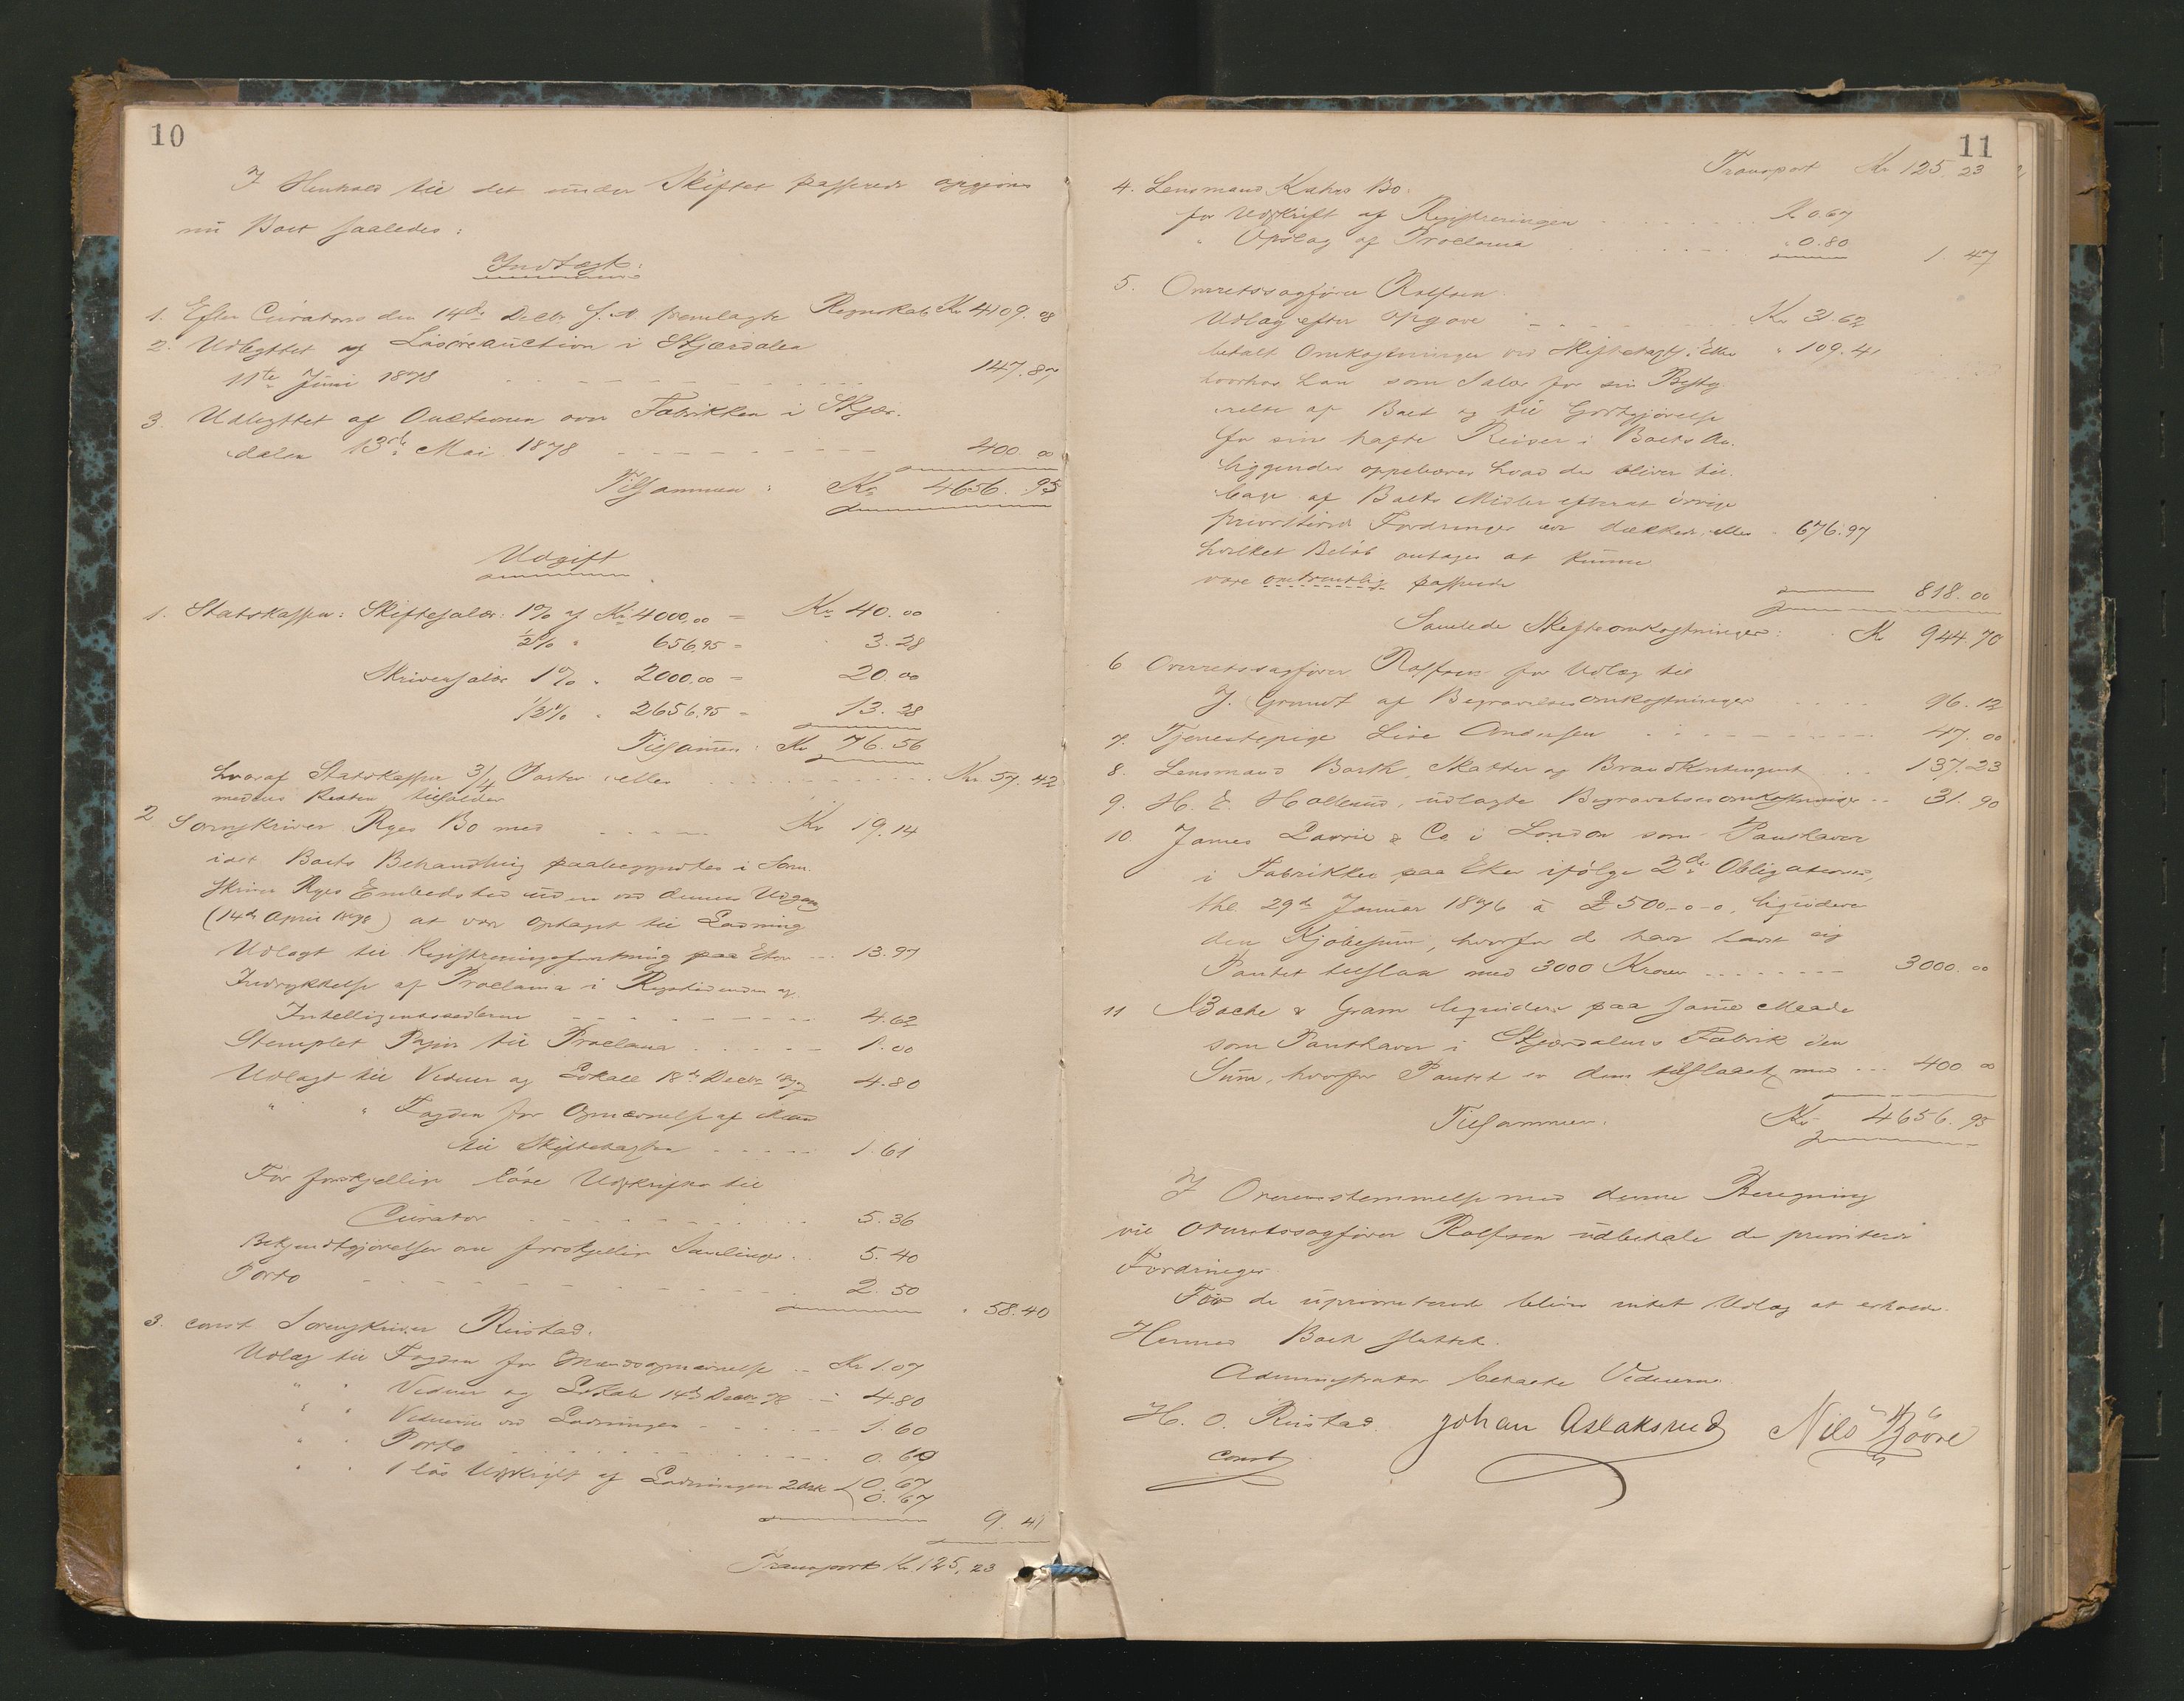 10
I Henhold til det under Skiftet passerede opgjøres
nu Boet saaledes:
Indtægt:
1. Efter Curators den 14de Decbr f. A. fremlagte Regnskab Kr 4109.08
2. Udbyttet af Løsøreauction i Skjærdalen
11te Juni 1878 147.87
3. Udbyttet af Auctionen over Fabrikken i Skjær-
dalen 13de Mai 1878 400 00
Tilsammen: Kr 4656.95
Udgift
1. Statskassen: Skiftesalær: 1% af Kr 4000,00 = Kr 40.00
½% " 656,95 = 3.28
Skriversalær 1% " 2000,00 = 20.00
½% " 2656,95 = 13.28
Tilsammen: Kr 76.56
hvoraf Statskassen 3/4 Parter eller Kr 57.42
medens Resten tilfalder
2 Sorenskriver Ryes Bo med Kr 19.14
idet Boets Behandling paabegyndtes i Soren-
skriver Ryes Embedstid uden ved dennes Udgang
(14de April 1878) at være optaget til Lodning
Udlagt til Registreringsforretning paa Eker 13.97
Indrykkelse af Proclama i Rigstidenden og
Intelligentssedlerne 4.62
Stemplet Papir til Proclama 1.00
Udlagt til Vidner og Lokale 18de Decbr 1877 4.80
" " Fogden for Opnævnelse af Mænd
til Skiftetaxten 1.61
For forskjellige løse Udskrifter til
Curator 5.36
Bekjendtgjørelser om forskjellige Samlinger 5.40
Porto 2.50
" 58.40
3. const. Sorenskriver Rustad.
Udlæg til Fogden for Mændsopnævnelse Kr 1.07
" " Vidner og Lokale 14de Decbr 78 " 4.80
" " Vidnerne ved Lodningen 1.60
" " Porto 0.60
" " 1 løs Udskrift af Lodningen 2 Ark 0.67
0.67
9.41
Transport Kr. 125,23
11
Transport Kr 125.23
4. Lensmand Kuhrs Bo.
for Udskrift af Registreringen Kr 0.67
" Opslag af Proclama " 0.80
1.47
5. Overretssagfører Rolfsen
Udlæg efter Opgave Kr 31.62
betalt Omkostninger ved Skiftetaxt i Eker " 109.41
hvorhos han som Salær for sin Besty-
relse af Boet og til Godtgjørelse
for sine hafte Reiser i Boets An-
liggender oppebærer hvad der bliver til-
bage af Boets Midler efterat øvrige
prioriterede Fordringer er dækkede, eller " 676.97
hvilket Beløb antages at kunne
være omtrentlig passende
818.00
Samlede Skifteomkostninger: Kr 944.70
6 Overretssagfører Rolfsen for Udlæg til
J. Grundt af Begravelsesomkostninger 96.12
7. Tjenestepige Lise Andersen 47.00
8. Lensmand Barth, Skatter og Brandkontingent 137.23
9. H. E. Hallund, udlagte Begravelsesomkostninger 31.90
10. James Lawrie & Co i London som Panthaver
i Fabrikken paa Eker ifølge 2de Obligationer,
thl. 29de Januar 1876 à £ 500-0-0, liquiderer
den Kjøbesum, hvorfor de have havt sig
Pantet tilslaaet med 3000 Kroner 3000.00
11 Bache & Gram liquiderer paa samme Maade
som Panthaver i Skjærdalens Fabrik den
Sum, hvorfor Pantet er dem tilslaaet med 400 00
Tilsammen. Kr 4656.95
I Overensstemmelse med denne Beregning
vil Overretssagfører Rolfsen udbetale de prioriterede
Fordringer.
For de uprioriterede bliver intet Udlæg at erholde.
Hermed Boet sluttet.
Administrator betalte Vidnerne.
H. O. Rustad Johan Aslaksrud Nils
const